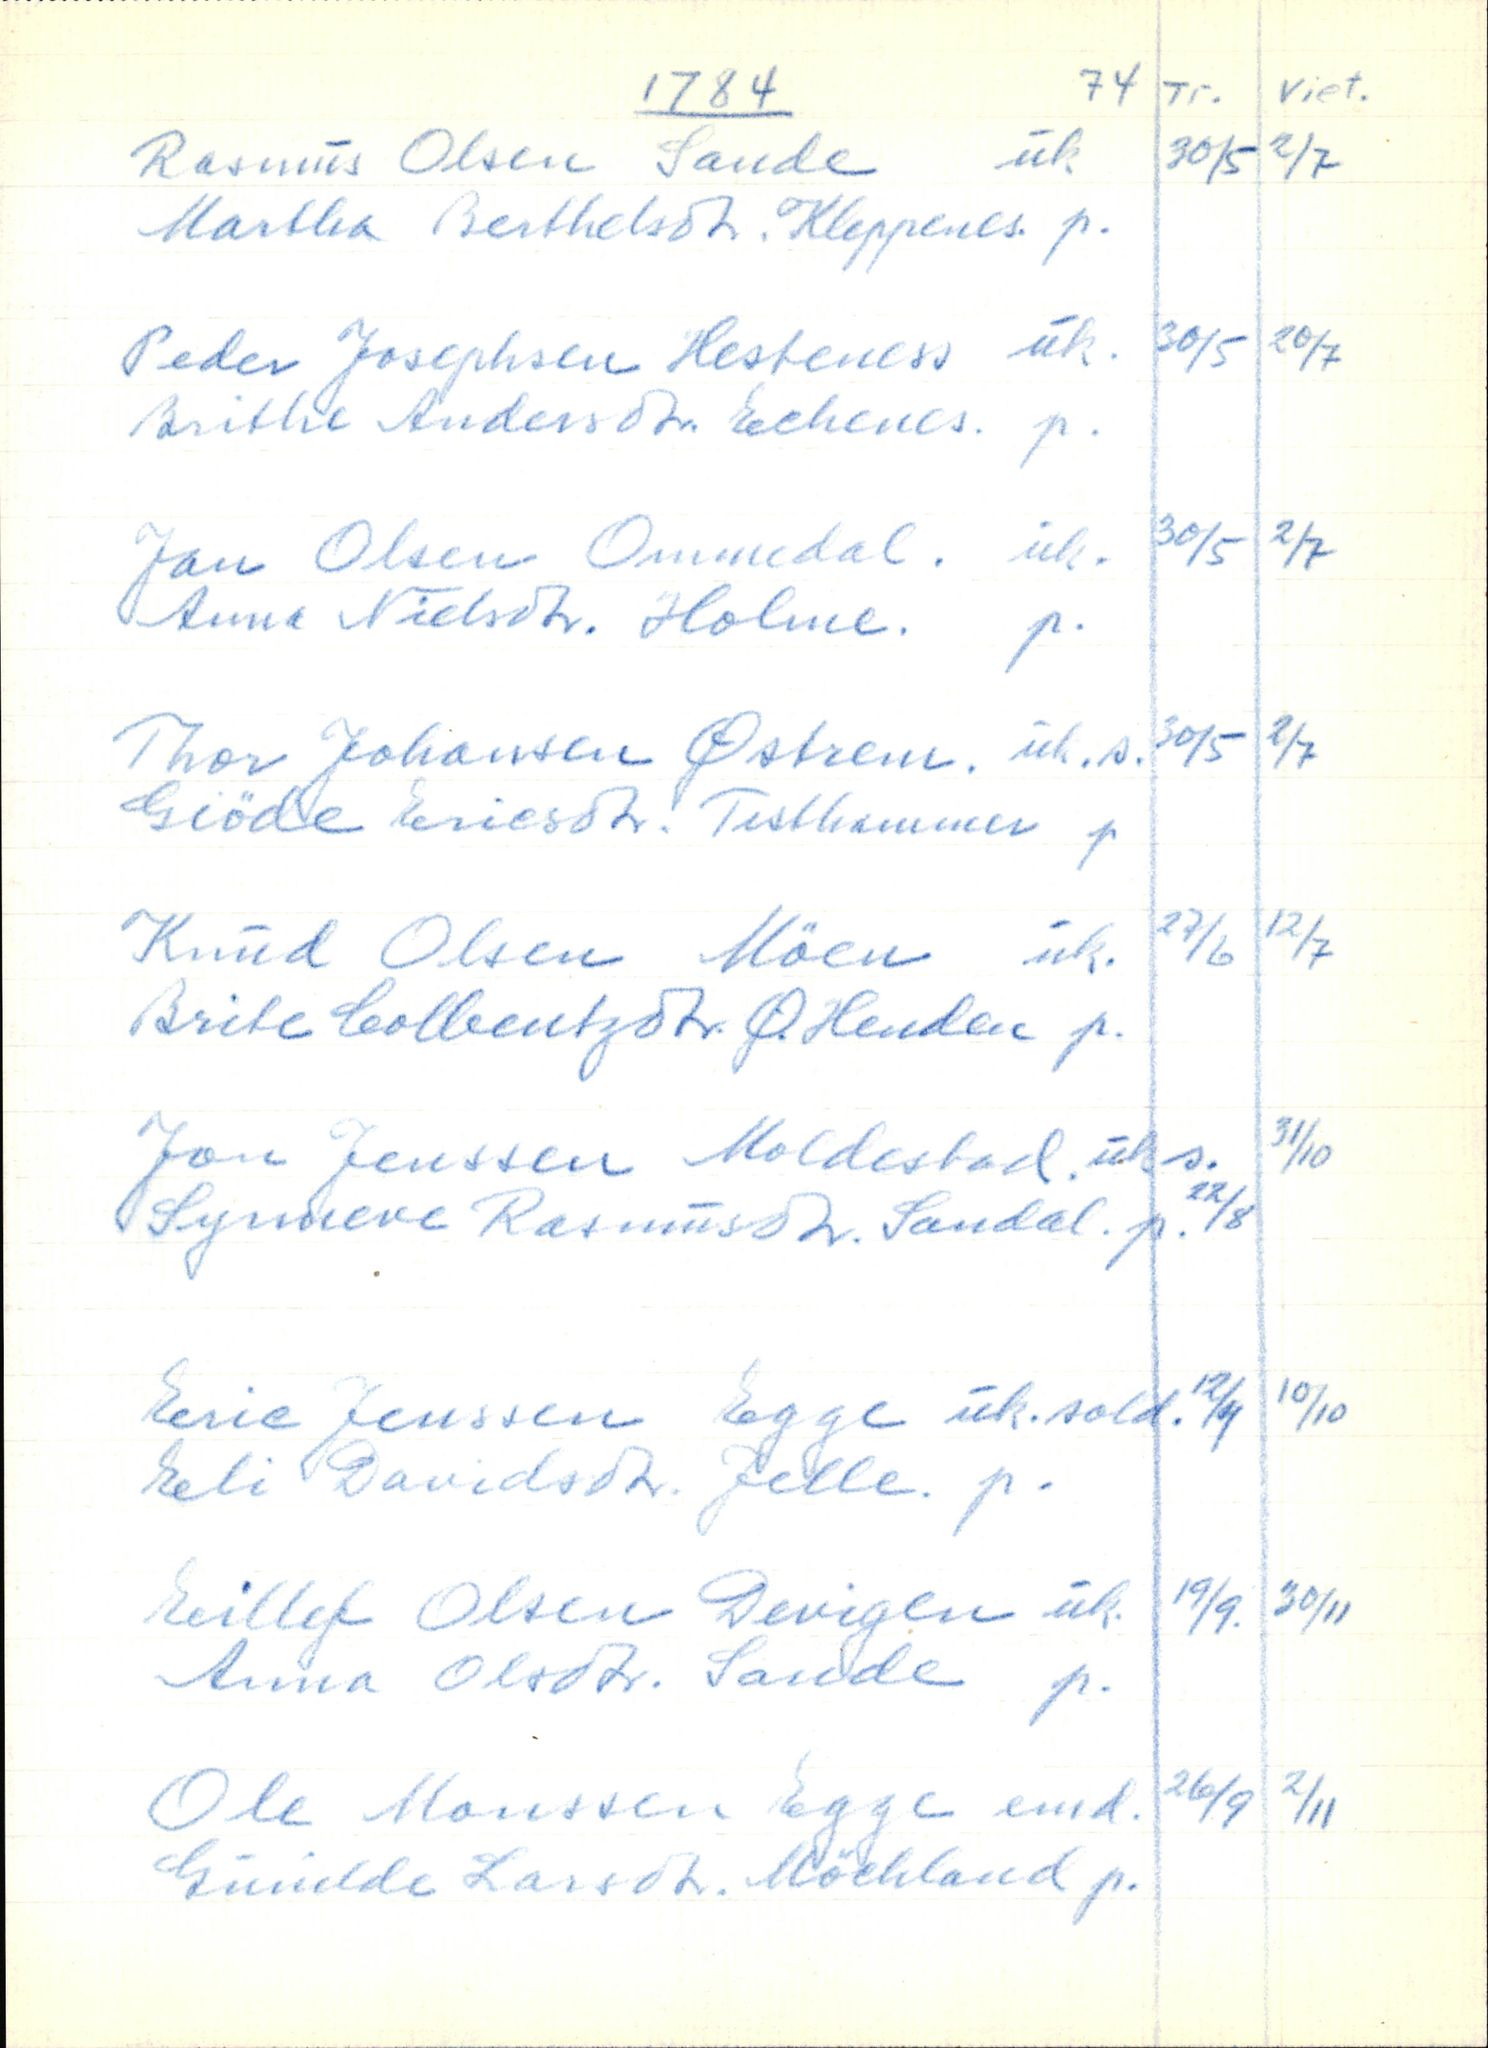 1784 74 Tr. Viet.
Rasmus Olsen Sande uk 30/5 2/7
Martha Berthelsdtr. Kleppenes. p.
Peder Josephsen Hesteness uk. 30/5 20/7
Brithe Andersdtr. Eechenes. p.
Jan Olsen Ommedal. uk. 30/5 2/7
Anna Nielsdtr. Holme. p.
Thor Johansen Østrem. uk. s. 30/5 2/7
Giöde Ericsdtr. Testhammer p
Knud Olsen Möen uk. 27/6 12/7
Brite Colbentzdtr. Ø. Henden p.
Jon Jenssen Moldestad. uk s. 31/10
Synneve Rasmusdtr. Sandal. p. 22/8
Eeric Jenssen Egge uk. sold. 12/9 10/10
Eeli Davidsdtr. Jelle. p.
Eillef Olsen Devigen uk. 19/9. 30/11
Anna Olsdtr. Sande p.
Ole Monssen Egge emd. 26/9 2/11
Gunilde Larsdtr. Möchland p.